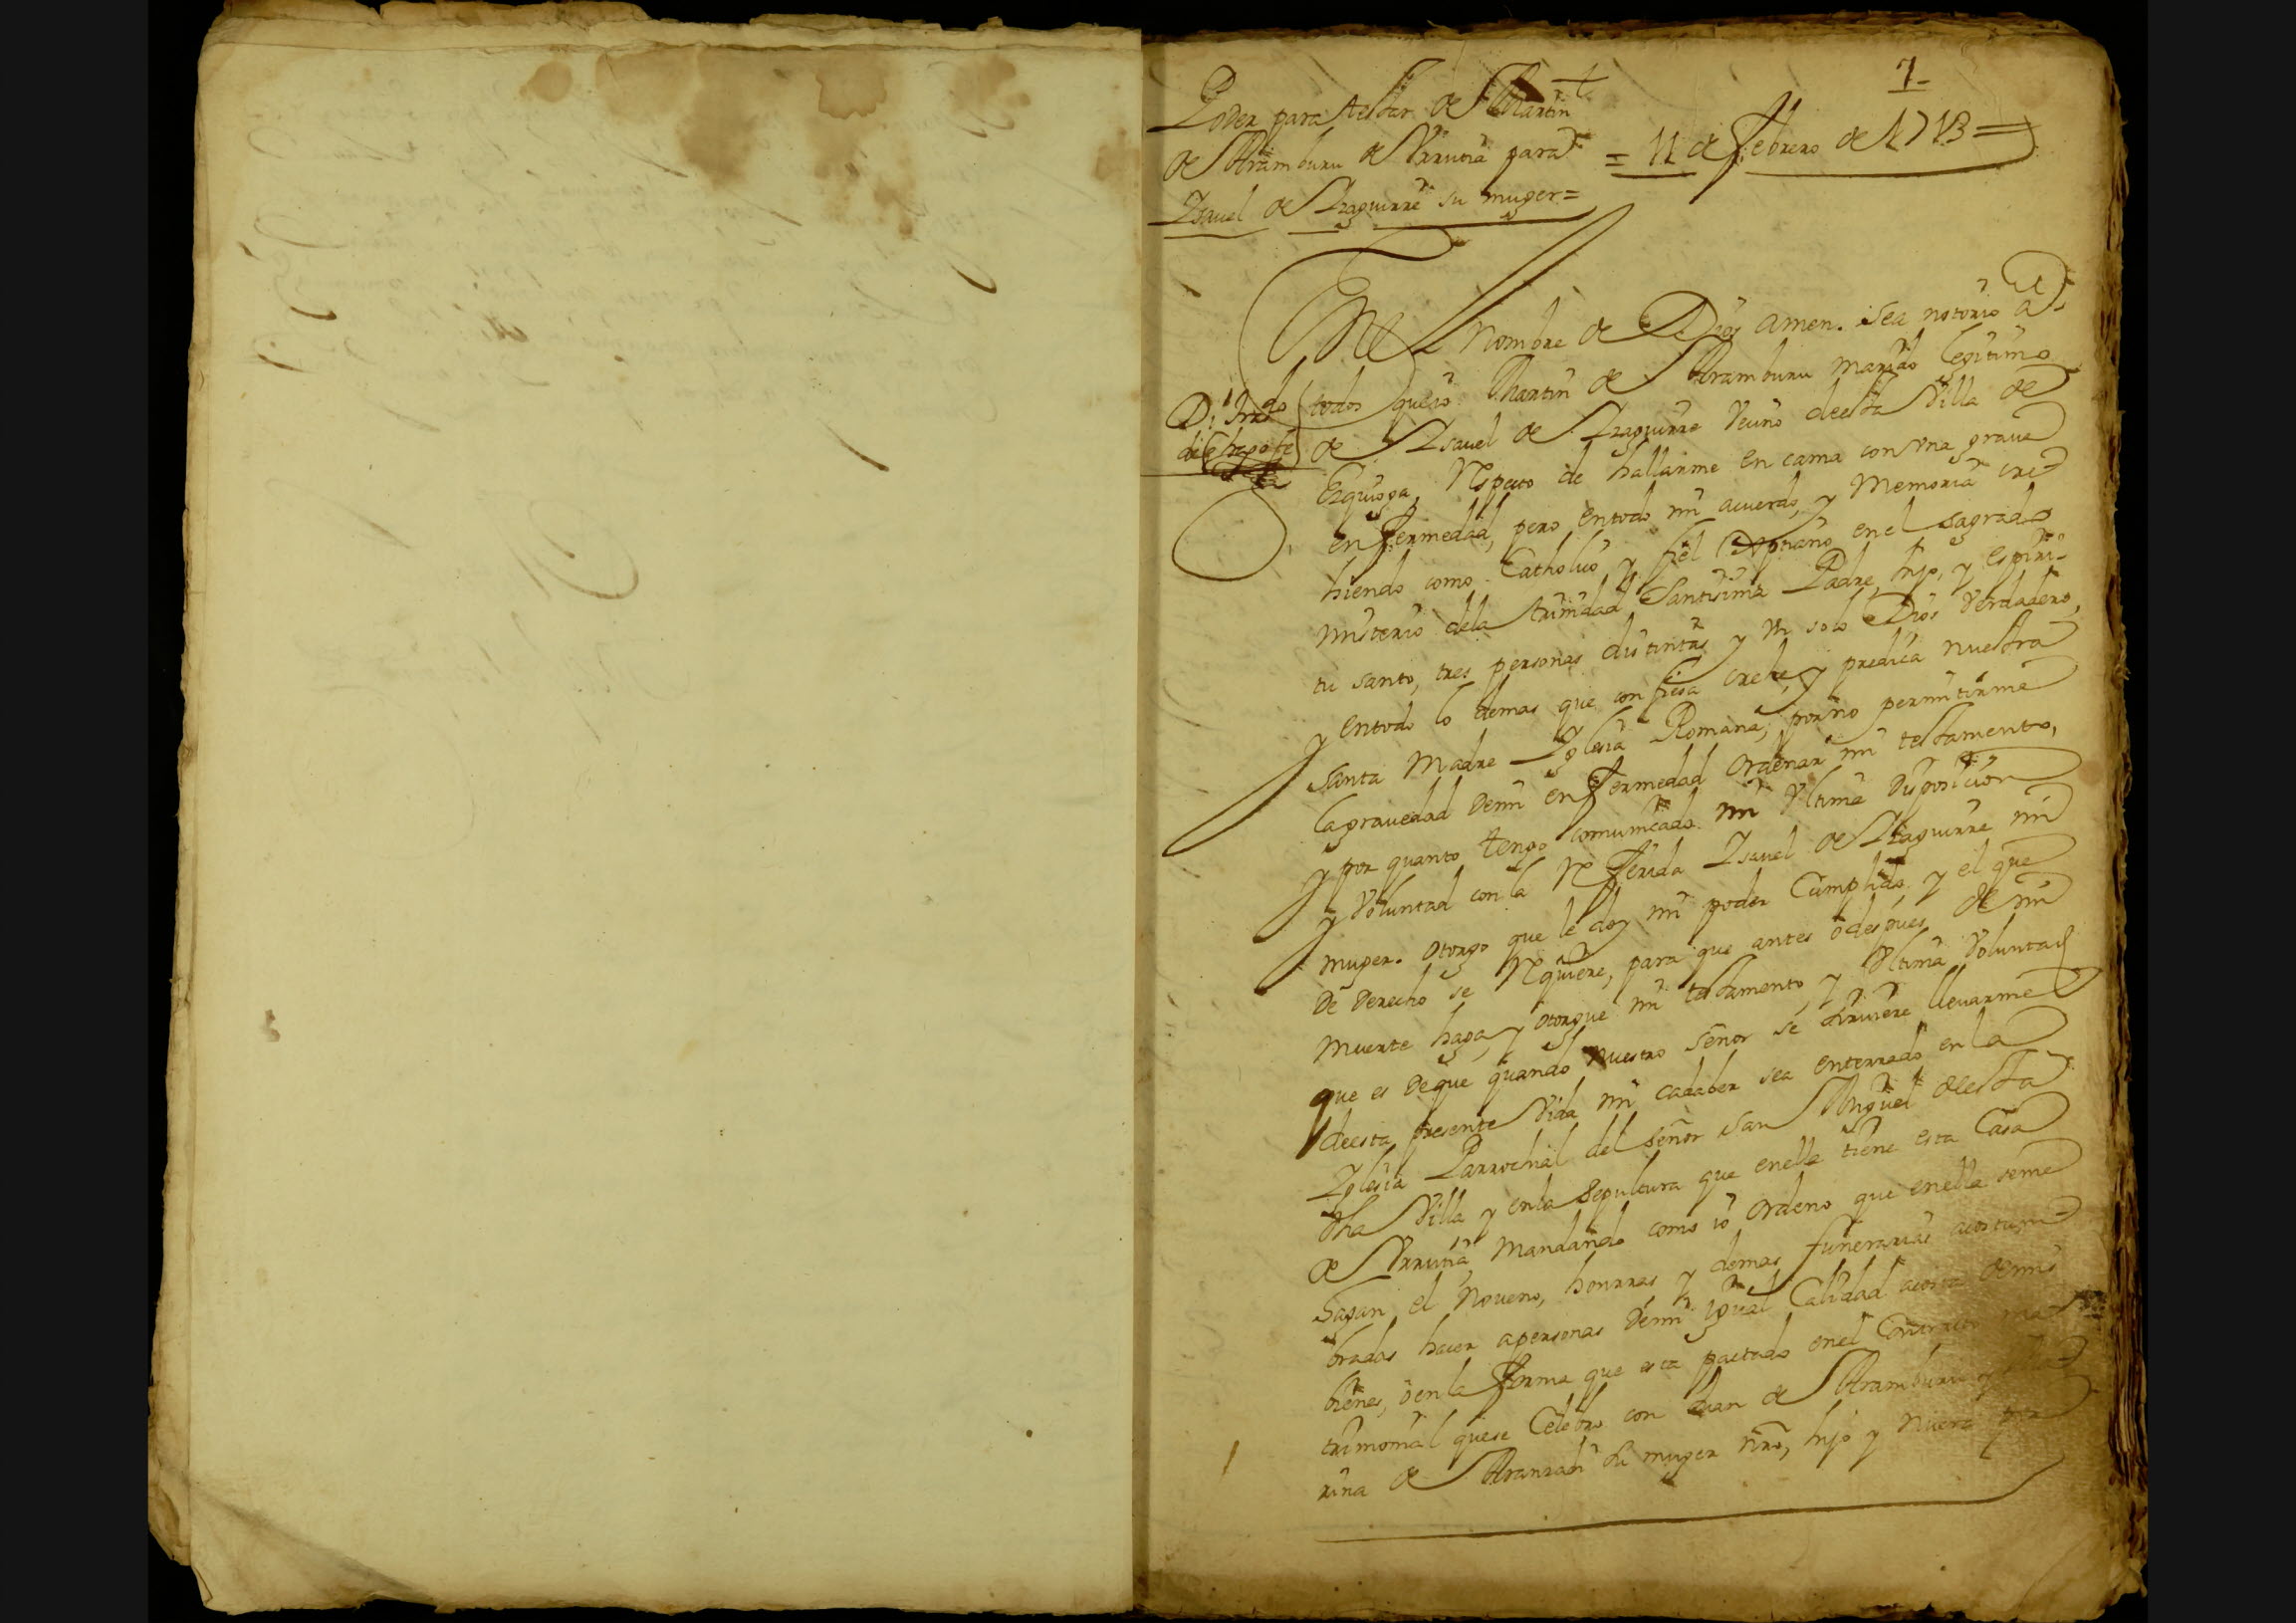 7
Poder para testar de Martin
de Aramburu de Vrrutia para
Ysauel de Yzaguirre su muger=
= 11 de Febrero de 1713 =
En el Nombre de Dios amen. Sea notorio a
todos que io Martin de Aramburu marido legitimo
de Ysauel de Yzaguirre Vecino de esta Villa de
Ezquioga, Respecto de hallarme en cama con vna graue
enfermedad, pero en todo mi acuerdo, y memoria cre-
hiendo como Catholico y fiel Xptiano en el sagrado
misterio de la trinidad Santisima Padre, hijo, y espiri-
tu santo, tres personas distintas y vn solo Dios Verdadero,
y en todo lo demas que confiesa crehe, y predica nuestra
Santa Madre Yglesia Romana, por no permitirme
la grauedad de mi enfermedad ordenar mi testamento,
y por quanto tengo comunicado mi vltima disposicion
y Voluntad con la Referida Ysauel de Yzaguirre mi
muger. otorgo que le doy mi poder Cumplido, y el que
de derecho se Requiere, para que antes o despues de mi
muerte haga, y otorgue mi testamento, y vltima Voluntad
que es de que quando nuestro señor se siruiere lleuarme
de esta presente Vida mi cadaber sea enterrado en la
Yglesia Parrochial del señor san Miguel de esta
dha Villa y en la sepultura que en ella tiene esta Casa
de Vrrutia, mandando como io ordeno que en ella se me
hagan el Noueno, honrras, y demas funerarias acostum-
bradas hacer a personas de mi igual Calidad a costa de mis
bienes, o en la forma que esta pactado en el Contracto ma-
trimonial que se Celebro con Juan de Aramburu y
rina de Aranzadi su muger nro, hijo y nuera por
Di trdo